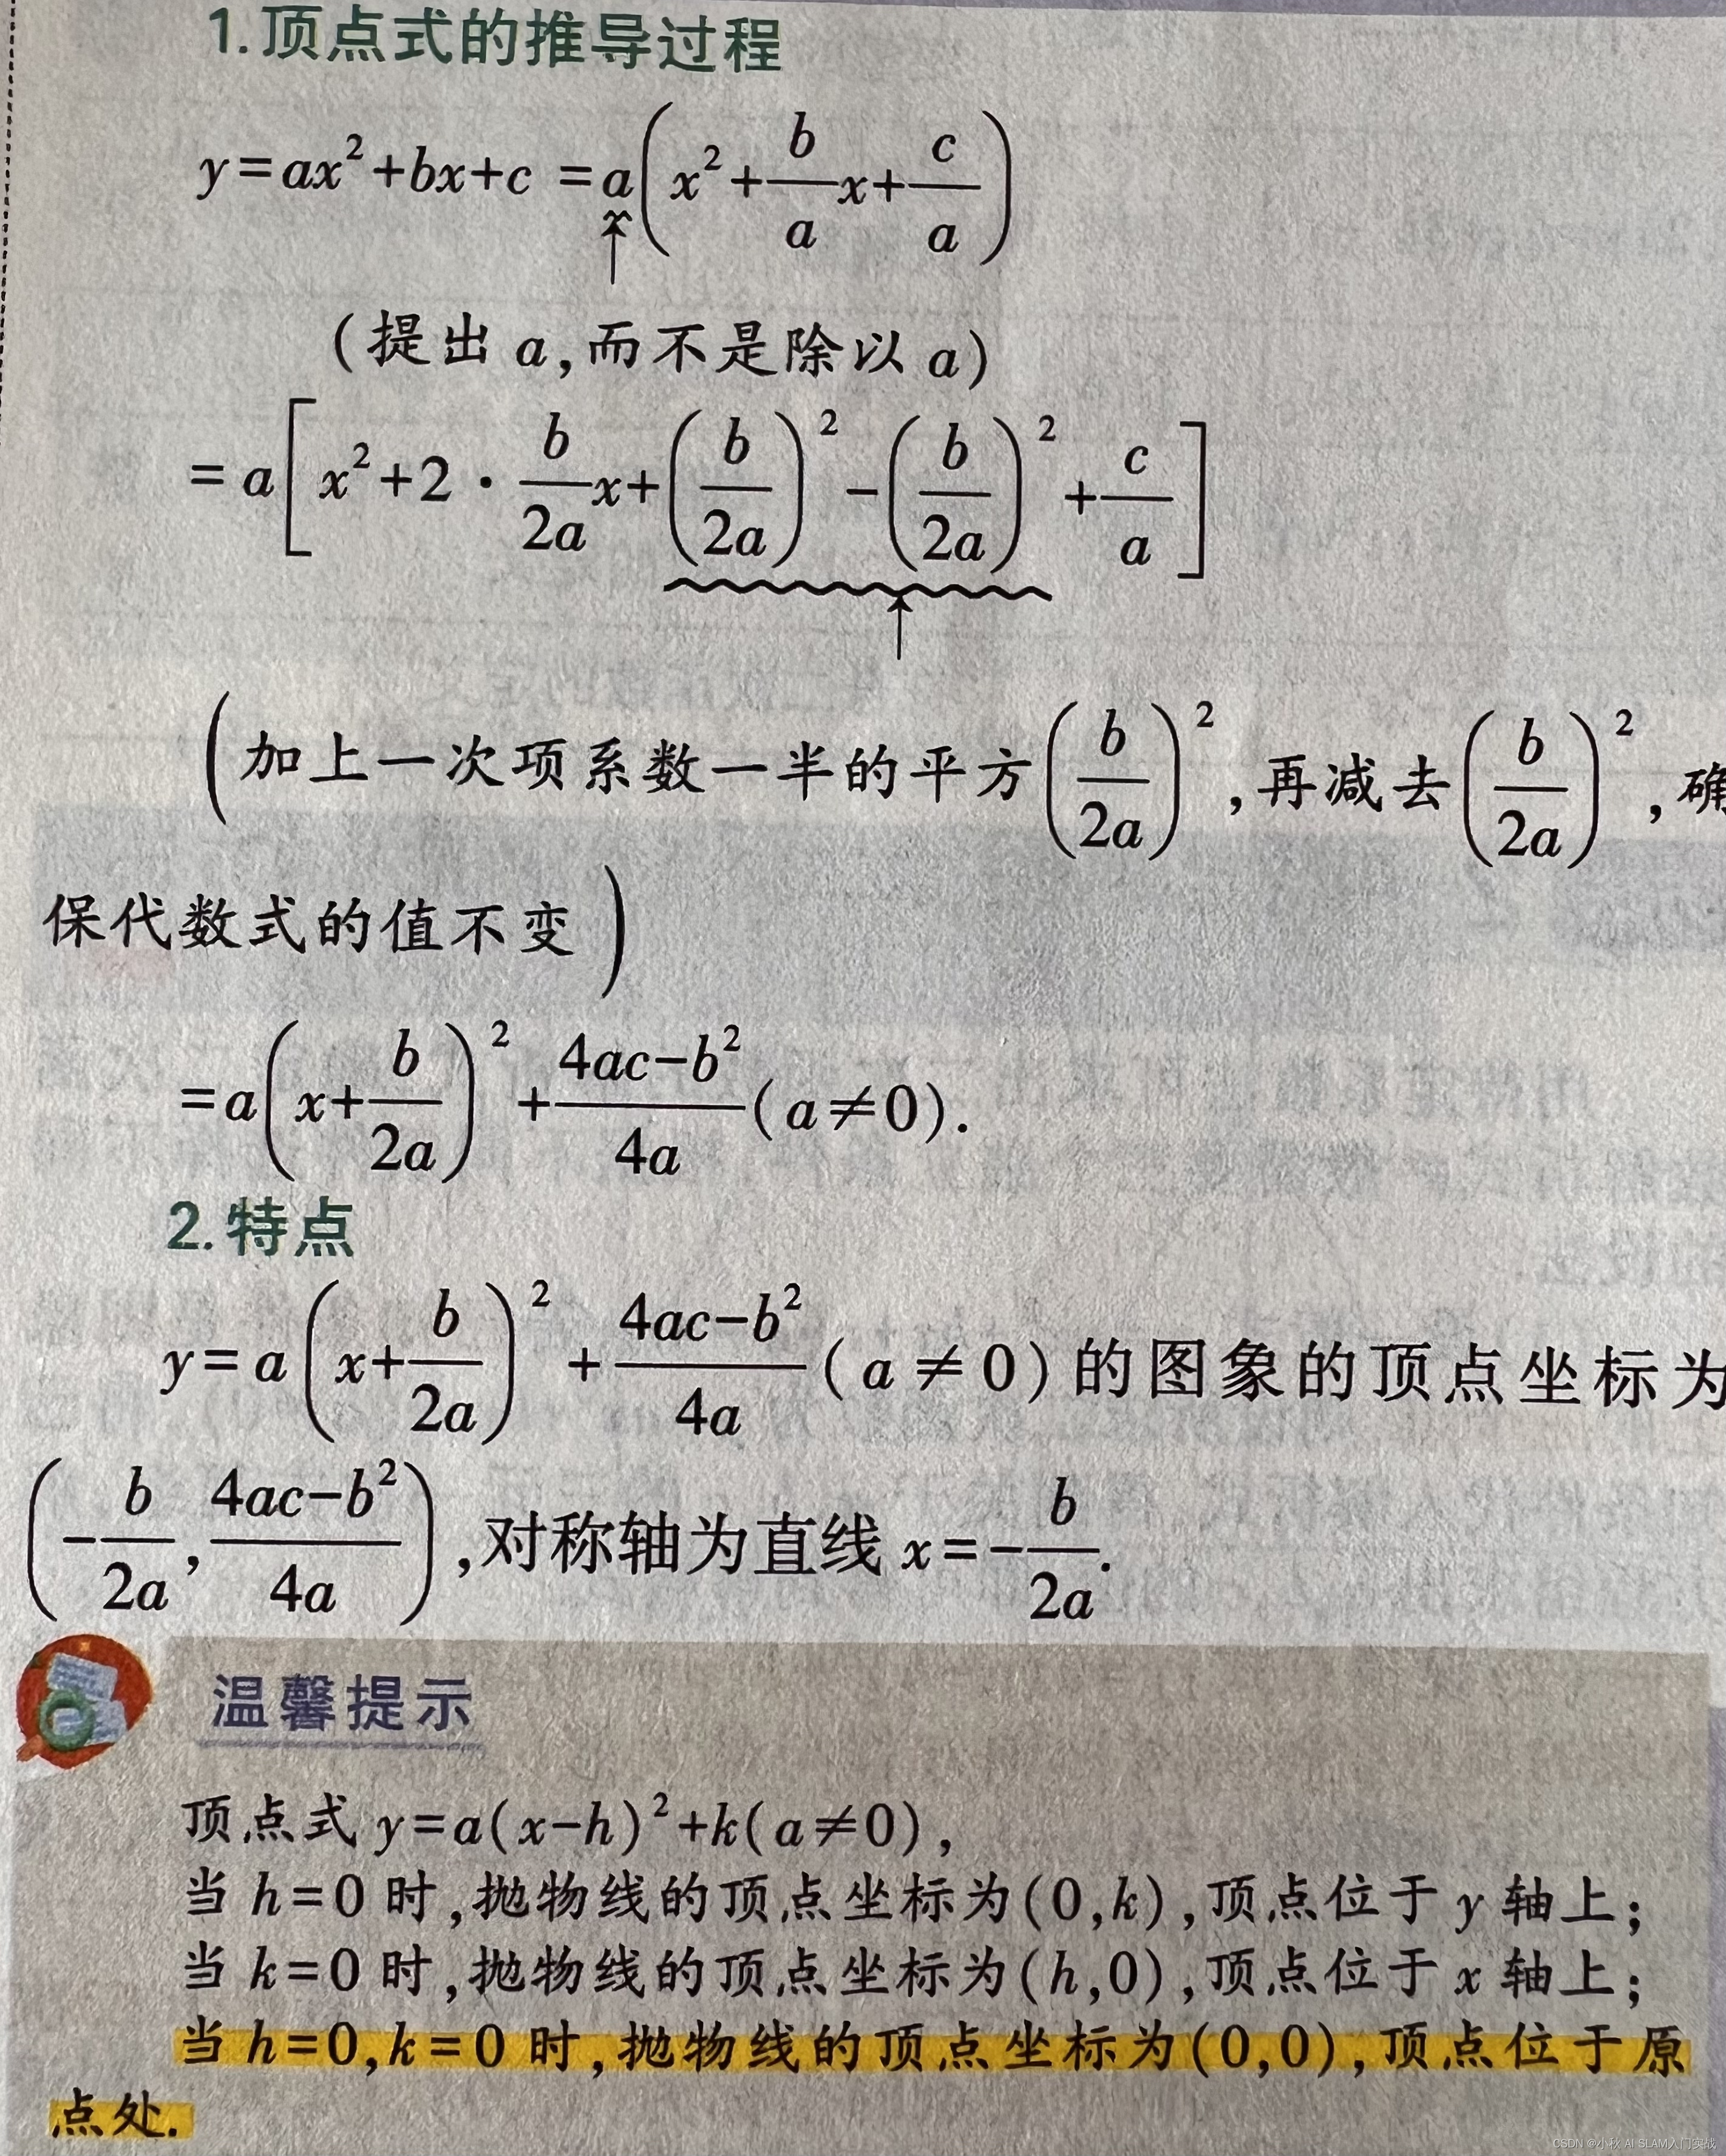 1.顶点式的推导过程
y=ax²+bx+c =a(x²+\frac{b}{a}x+\frac{c}{a})
(提出 a,而不是除以 a)
=a[x²+2·\frac{b}{2a}x+(\frac{b}{2a})²-(\frac{b}{2a})²+\frac{c}{a}]
(加上一次项系数一半的平方(\frac{b}{2a})²,再减去(\frac{b}{2a})²,确
保代数式的值不变)
=a(x+\frac{b}{2a})²+\frac{4ac-b²}{4a}(a≠0).
2.特点
y=a(x+\frac{b}{2a})²+\frac{4ac-b²}{4a}(a≠0)的图象的顶点坐标为
(-\frac{b}{2a},\frac{4ac-b²}{4a}),对称轴为直线 x=-\frac{b}{2a}.
温馨提示
顶点式 y=a(x-h)²+k(a≠0),
当 h=0 时,抛物线的顶点坐标为(0,k),顶点位于 y 轴上;
当 k=0 时,抛物线的顶点坐标为(h,0),顶点位于 x 轴上;
当 h=0,k=0 时,抛物线的顶点坐标为(0,0),顶点位于原
点处.
CSDN @小秋 AI SLAM入门实战